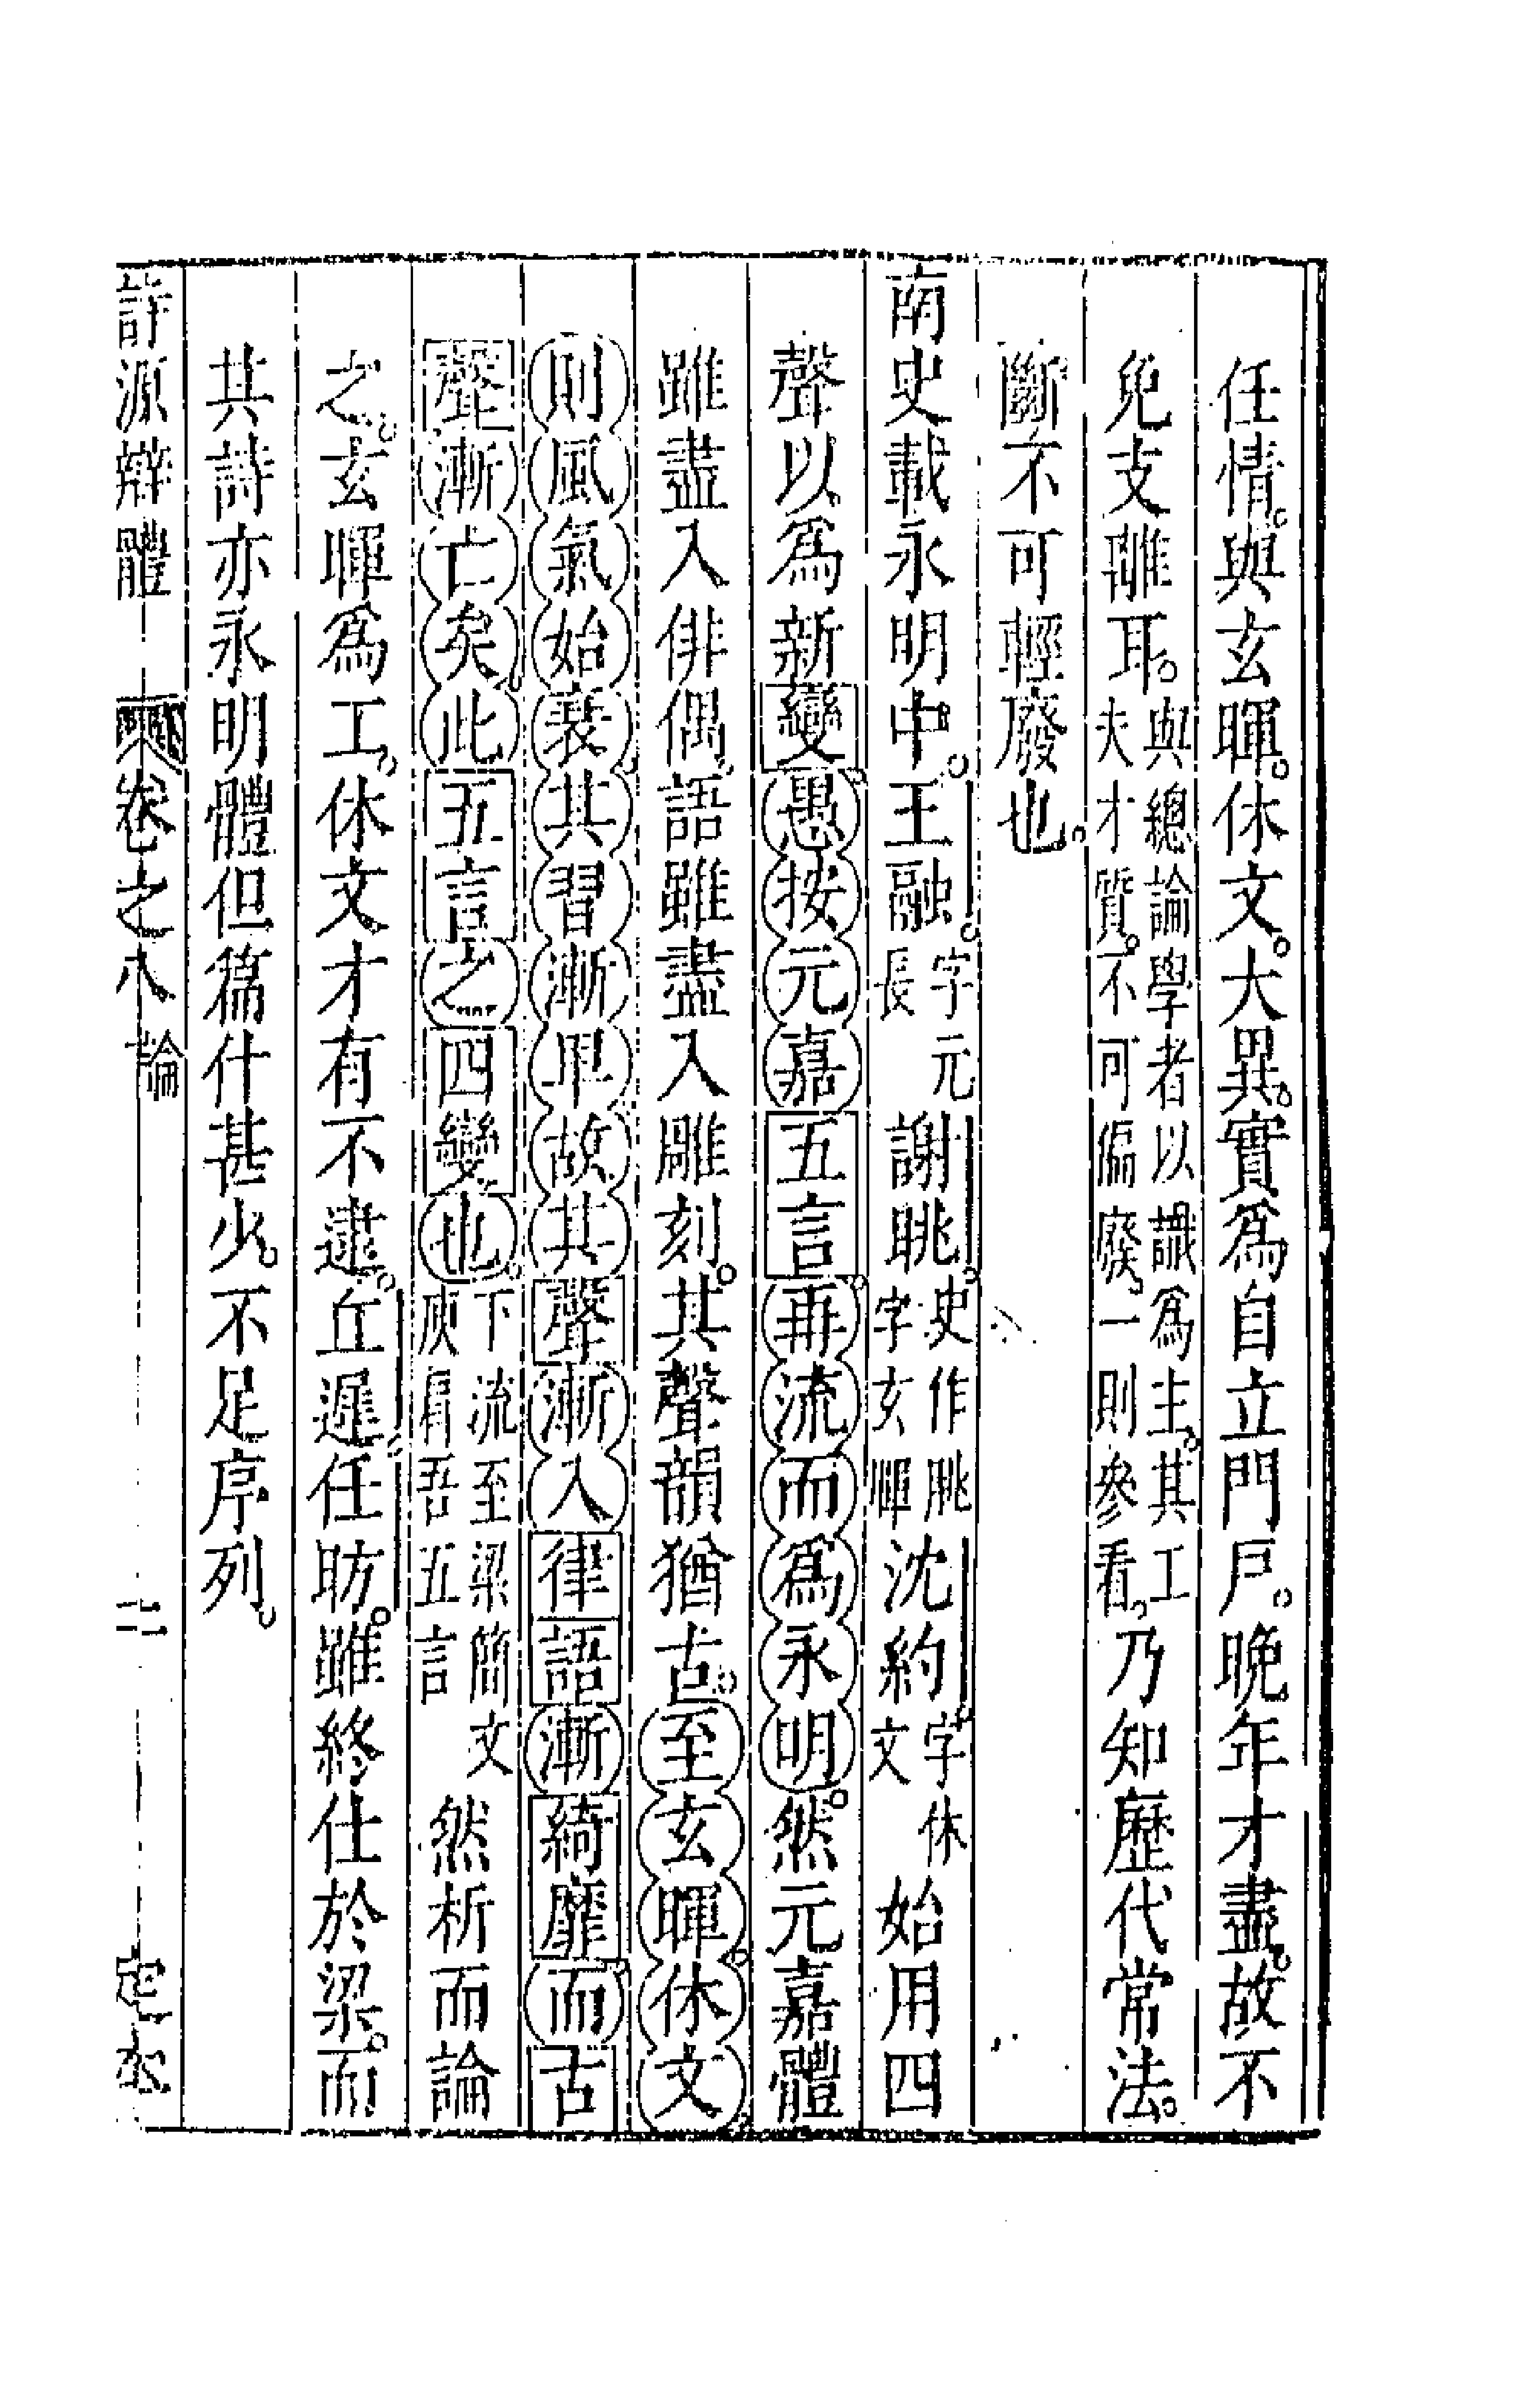 任情與玄暉休文大異實爲自立門戶晚年才盡故不
免支離耳與總論學者以識爲主其工夫才質不可偏廢一則參看乃知歷代常法
斷不可輕廢也
南史載永明中王融字元長謝眺史作朓字玄暉沈約字休文始用四
聲以爲新變愚按元嘉五言再流而爲永明然元嘉體
雖盡入俳偶語雖盡入雕刻其聲韻猶古至玄暉休文
則風氣始衰其習漸卑故其聲漸入律語漸綺靡而古
聲漸亡矣此五言之四變也下流至梁簡文庾肩吾五言然析而論
之玄暉爲工休文才有不逮丘遲任昉雖終仕於梁而
其詩亦永明體但篇什甚少不足序列
詩源辯體 卷之八 論